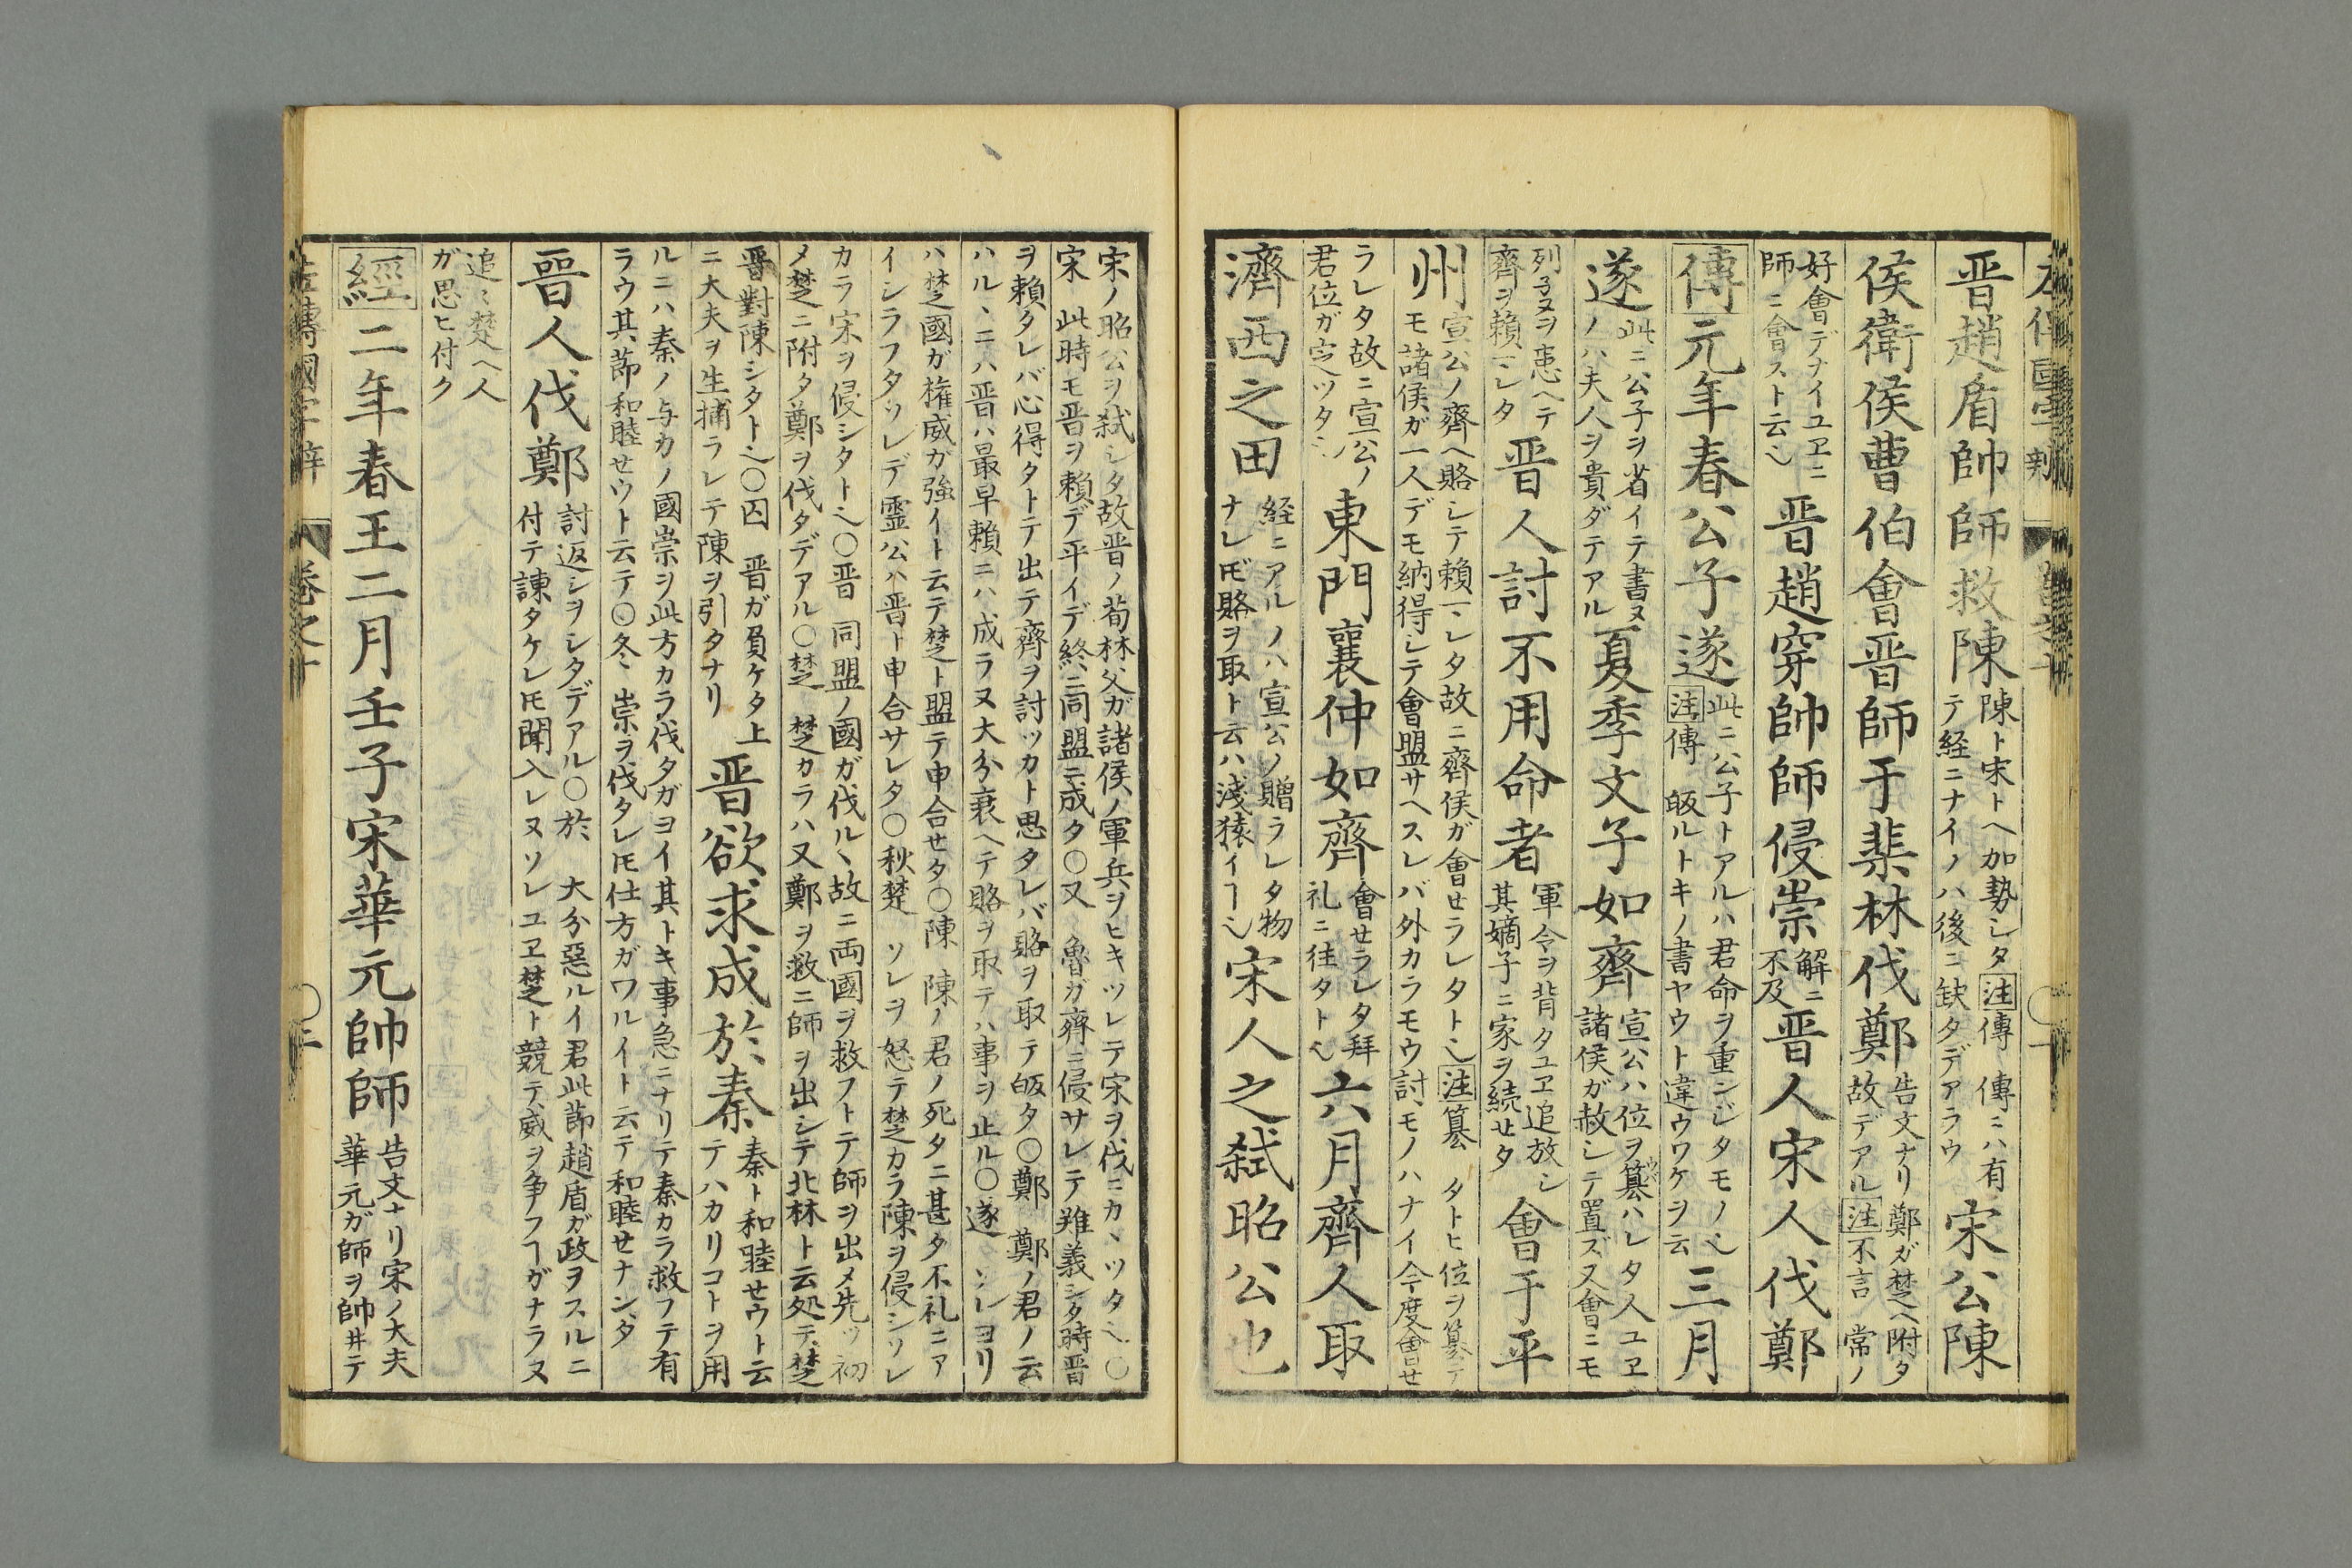 晋趙盾帥師救陳陳ト宋トヘ加勢シタ注傳 傳ニハ有テ経ニナイノハ後ニ缺タデアラウ宋公陳
侯衛侯曹伯會晋師于棐林伐鄭告文ナリ鄭ガ楚ヘ附タ故デアル注不言 常ノ
好會デナイユヱニ師ニ會スト云〻晋趙穿帥師侵崇解ニ不及晋人宋人伐鄭
傳元年春公子遂此ニ公子トアルハ君命ヲ重ンジタモノ〻注傳 皈ルトキノ書ヤウト違ウワケヲ云三月
遂此ニハ公子ヲ省イテ書ヌノハ夫人ヲ貴ダテアル夏季文子如齊宣公ハ位ヲ簒ハレタ人ユヱ諸侯ガ赦シテ置ズ又會ニモ
列子ヌヲ患ヘテ齊ヲ頼マレタ晋人討不用命者軍令ヲ背タユヱ追放シ其嫡子ニ家ヲ続セタ會于平
州宣公ノ齊ヘ賂シテ頼マレタ故ニ齊侯ガ會セラレタト〻注簒 タトヒ位ヲ簒テモ諸侯ガ一人デモ納得シテ會盟サヘスレバ外カラモウ討モノハナイ今度會セ
ラレタ故ニ宣公ノ君位ガ定ツタ〻東門襄仲如齊會セラレタ拜礼ニ往タト〻六月齊人取
濟西之田経ニアルノハ宣公ノ贈ラレタ物ナレ𪜈賂ヲ取ト云ハ淺猿イヿ〻宋人之弑昭公也
宋ノ昭公ヲ弑シタ故晋ノ荀林父ガ諸侯ノ軍兵ヲヒキツレテ宋ヲ伐ニカヽツタ〻〇
宋 此時モ晋ヲ頼デ平イデ終ニ同盟ニ成タ〇又 魯ガ齊ニ侵サレテ難義シタ時晋
ヲ頼タレバ心得タトテ出テ齊ヲ討ツカト思タレバ賂ヲ取テ皈タ〇鄭 鄭ノ君ノ云
ハルヽニハ晋ハ最早頼ニハ成ラヌ大分衰ヘテ賂ヲ取テハ事ヲ止ル〇遂 ソレヨリ
ハ楚國ガ権威ガ強イト云テ楚ト盟テ申合セタ〇陳 陳ノ君ノ死タニ甚タ不礼ニア
イシラフタソレデ霊公ハ晋ト申合サレタ〇秋楚 ソレヲ怒テ楚カラ陳ヲ侵シソレ
カラ宋ヲ侵シタト〻〇晋 同盟ノ國ガ伐ルヽ故ニ両國ヲ救フトテ師ヲ出メ先ツ初
メ楚ニ附タ鄭ヲ伐タデアル〇楚 楚カラハ又鄭ヲ救ニ師ヲ出シテ北林ト云処テ楚
晋對陳シタト〻〇囚 晋ガ負ケタ上ニ大夫ヲ生捕ラレテ陳ヲ引タナリ晋欲求成於秦秦ト和睦セウト云テハカリコトヲ用
ルニハ秦ノ与カノ國崇ヲ此方カラ伐タガヨイ其トキ事急ニナリテ秦カラ救フテ有
ラウ其節和睦セウト云テ〇冬 崇ヲ伐タレ𪜈仕方ガワルイト云テ和睦セナンダ
晋人伐鄭討返シヲシタデアル〇於 大分惡ルイ君此節趙盾ガ政ヲスルニ付テ諌タケレ𪜈聞入レヌソレユヱ楚ト競テ威ヲ争フヿガナラヌ
追〻楚ヘ人ガ思ヒ付ク
經二年春王二月壬子宋華元帥師告文ナリ宋ノ大夫華元ガ師ヲ帥ヰテ